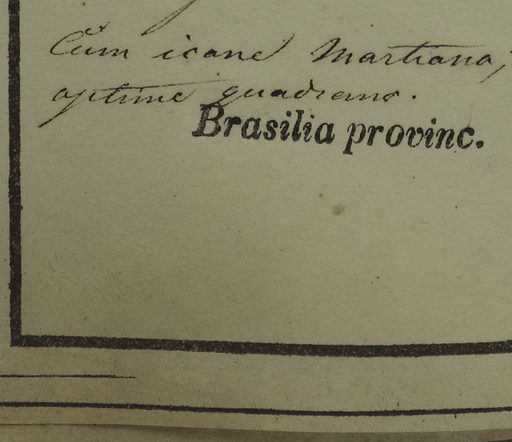 Cum icone Martiana,
optime quadrans.
Brasilia provinc.